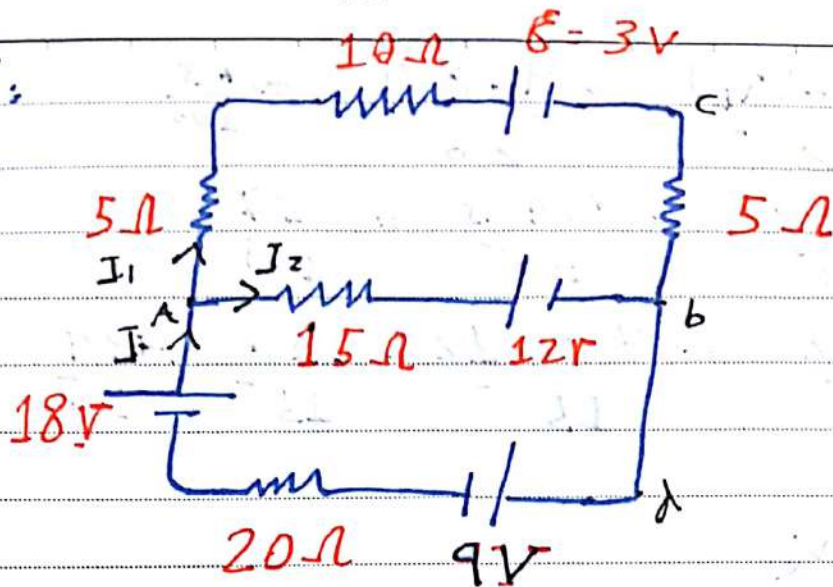 10Ω ε = 3v
c
5Ω 5Ω
I₁ I₂
A b
I
15Ω 12r
18V
d
20Ω 9V